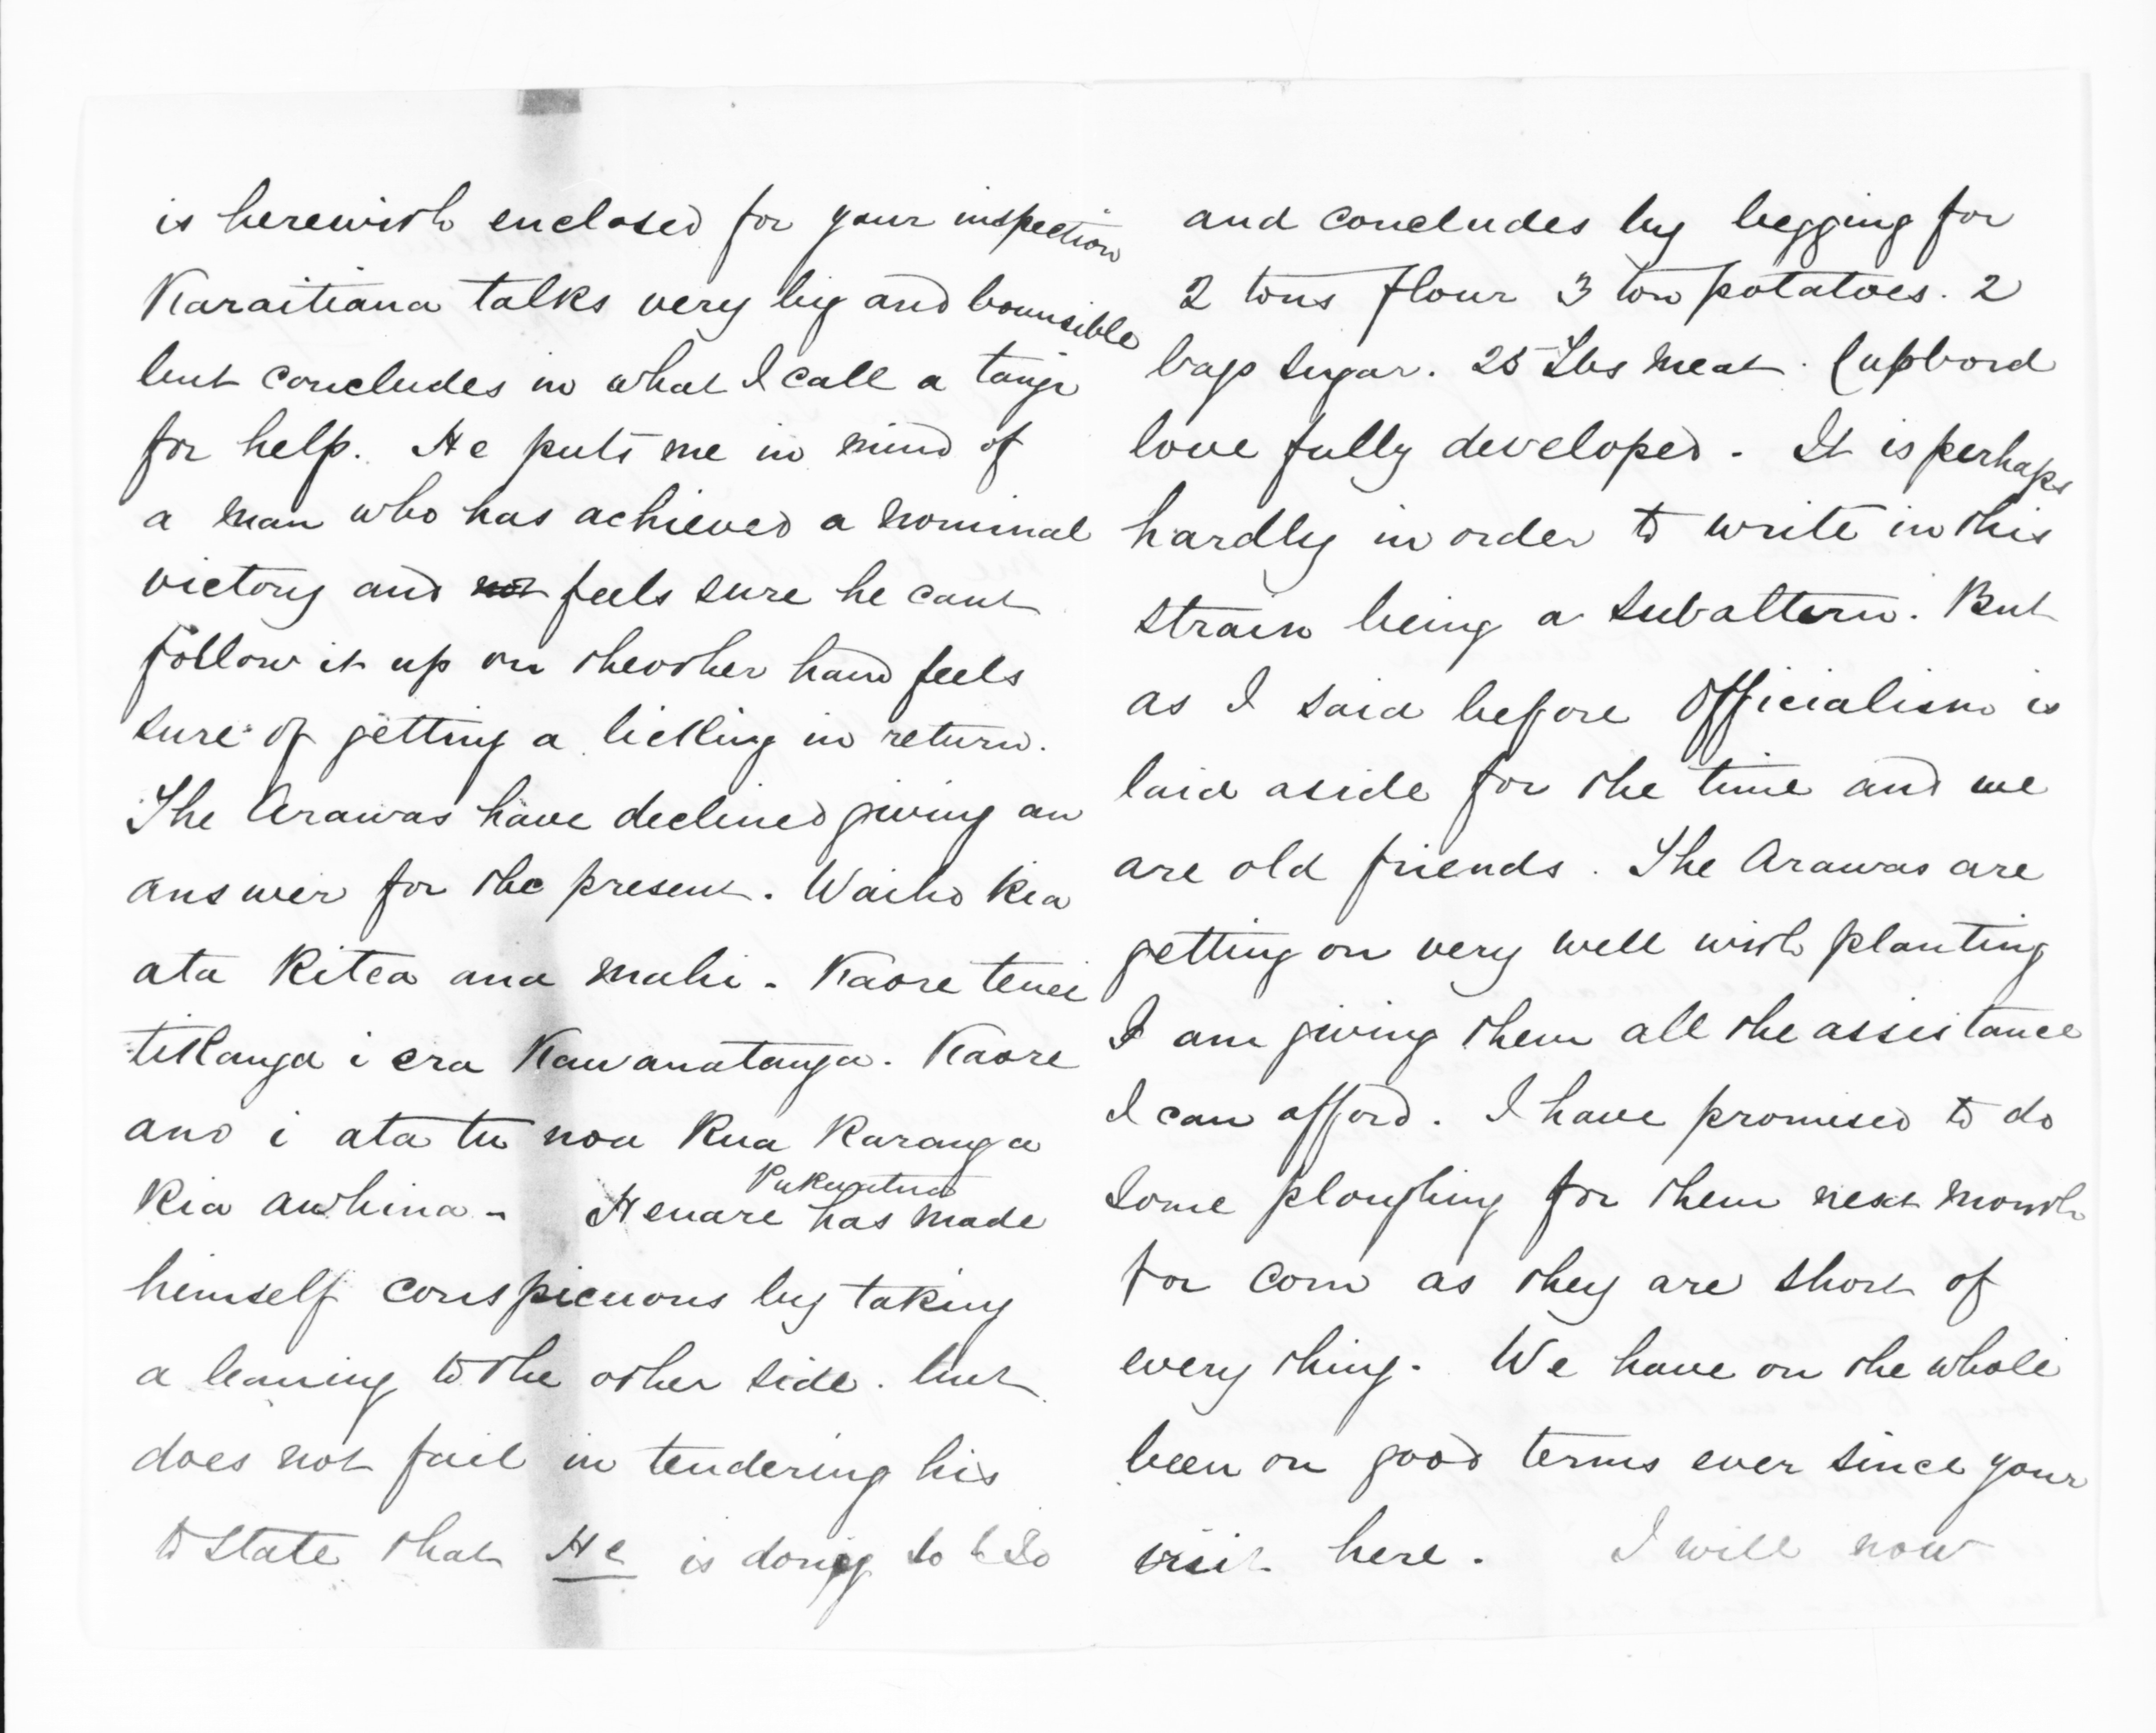 is herewith enclosed for your inspection
Karaitiana talks very big and bounsible
but concludes in what I call a tangi
for help. He puts me in mind of
a man who has achieved a nominal
victory and not feels sure he cant
follow it up on the other hand feels
sure of getting a licking in return.
The Arawas have declined giving an
answer for the present. Waiho kia
ata kitea ana mahi - Kaore tenei
tikanga i era Kawanatanga. Kaore
ano i ata tu noa kua karanga
kia awhina - Henare Pukuatua has made
himself conspicuous by taking
a leaning to the other side. but
does not fail in tendering his
to state that He is doing so & so
and concludes by begging for
2 tons flour 3 ton potatoes. 2
bags sugar. 25 Lbs meat. Cupbord
love fully developed. It is perhaps
hardly in order to write in this
strain being a subaltern. But
as I said before Officialism is
laid aside for the time and we
are old friends. The Arawas are
getting on very well with planting
I am giving them all the assistance
I can afford. I have promised to do
some ploughing for them next month
for corn as they are short of
every thing. We have on the whole
been on good terms ever since your
visit here. I will now